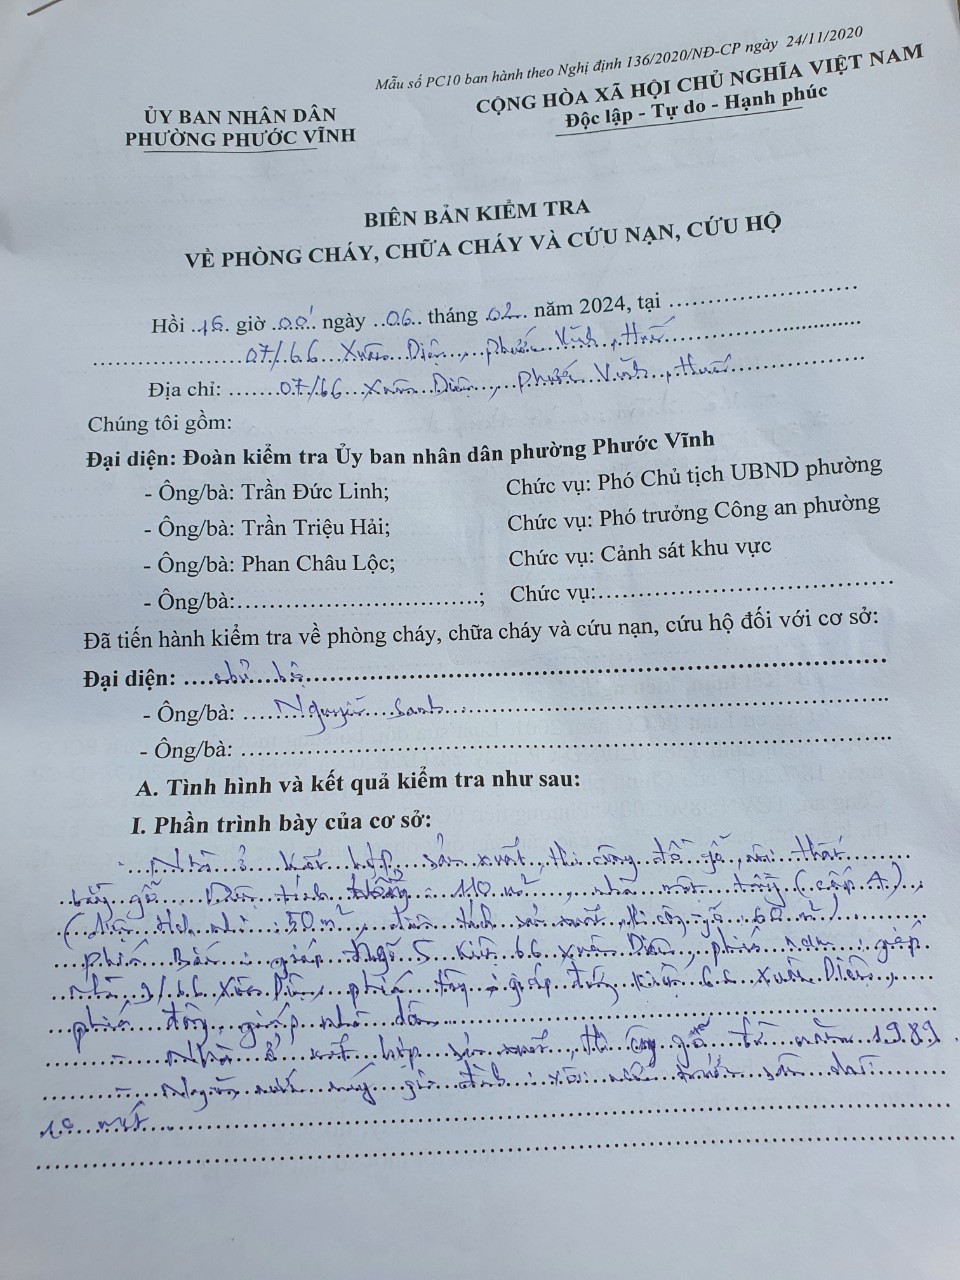 Mẫu số PC10 ban hành theo Nghị định 136/2020/NĐ-CP ngày 24/11/2020
ỦY BAN NHÂN DÂN
PHƯỜNG PHƯỚC VĨNH
CỘNG HÒA XÃ HỘI CHỦ NGHĨA VIỆT NAM
Độc lập - Tự do - Hạnh phúc
BIÊN BẢN KIỂM TRA
VỀ PHÒNG CHÁY, CHỮA CHÁY VÀ CỨU NẠN, CỨU HỘ
Hồi giờ 00' ngày 06 tháng 02 năm 2024, tại
07/66 Xuân Diệu, Phước Vĩnh, Huế
Địa chỉ: 07/66 Xuân Diệu, Phước Vĩnh, Huế
Chúng tôi gồm:
Đại diện: Đoàn kiểm tra Ủy ban nhân dân phường Phước Vĩnh
- Ông/bà: Trần Đức Linh; Chức vụ: Phó Chủ tịch UBND phường
- Ông/bà: Trần Triệu Hải; Chức vụ: Phó trưởng Công an phường
- Ông/bà: Phan Châu Lộc; Chức vụ: Cảnh sát khu vực
- Ông/bà:..............................; Chức vụ:..............................
Đã tiến hành kiểm tra về phòng cháy, chữa cháy và cứu nạn, cứu hộ đối với cơ sở:
Đại diện: chủ hộ
- Ông/bà: Nguyễn Sanh
- Ông/bà: ..............................
A. Tình hình và kết quả kiểm tra như sau:
I. Phần trình bày của cơ sở:
- Nhà ở kết hợp sản xuất, thi công đồ gỗ, nội thất
bằng gỗ. Diện tích : 110 m², nhà một tầng (cấp 4),
(diện tích : 50 m², diện tích sản xuất, thi công gỗ 60 m²).
Phía Bắc : giáp Ngõ 5 Kiệt 66 Xuân Diệu, phía nam : giáp
nhà 9/66 Xuân Diệu, phía tây : giáp đường Kiệt 66 Xuân Diệu,
phía đông giáp nhà dân
- Nhà ở kết hợp sản xuất, thi công gỗ từ năm 1989
- Nguồn nước máy gia đình :
10 mét.